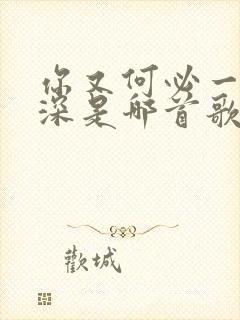 你又何必一
深是那首歌
歡城